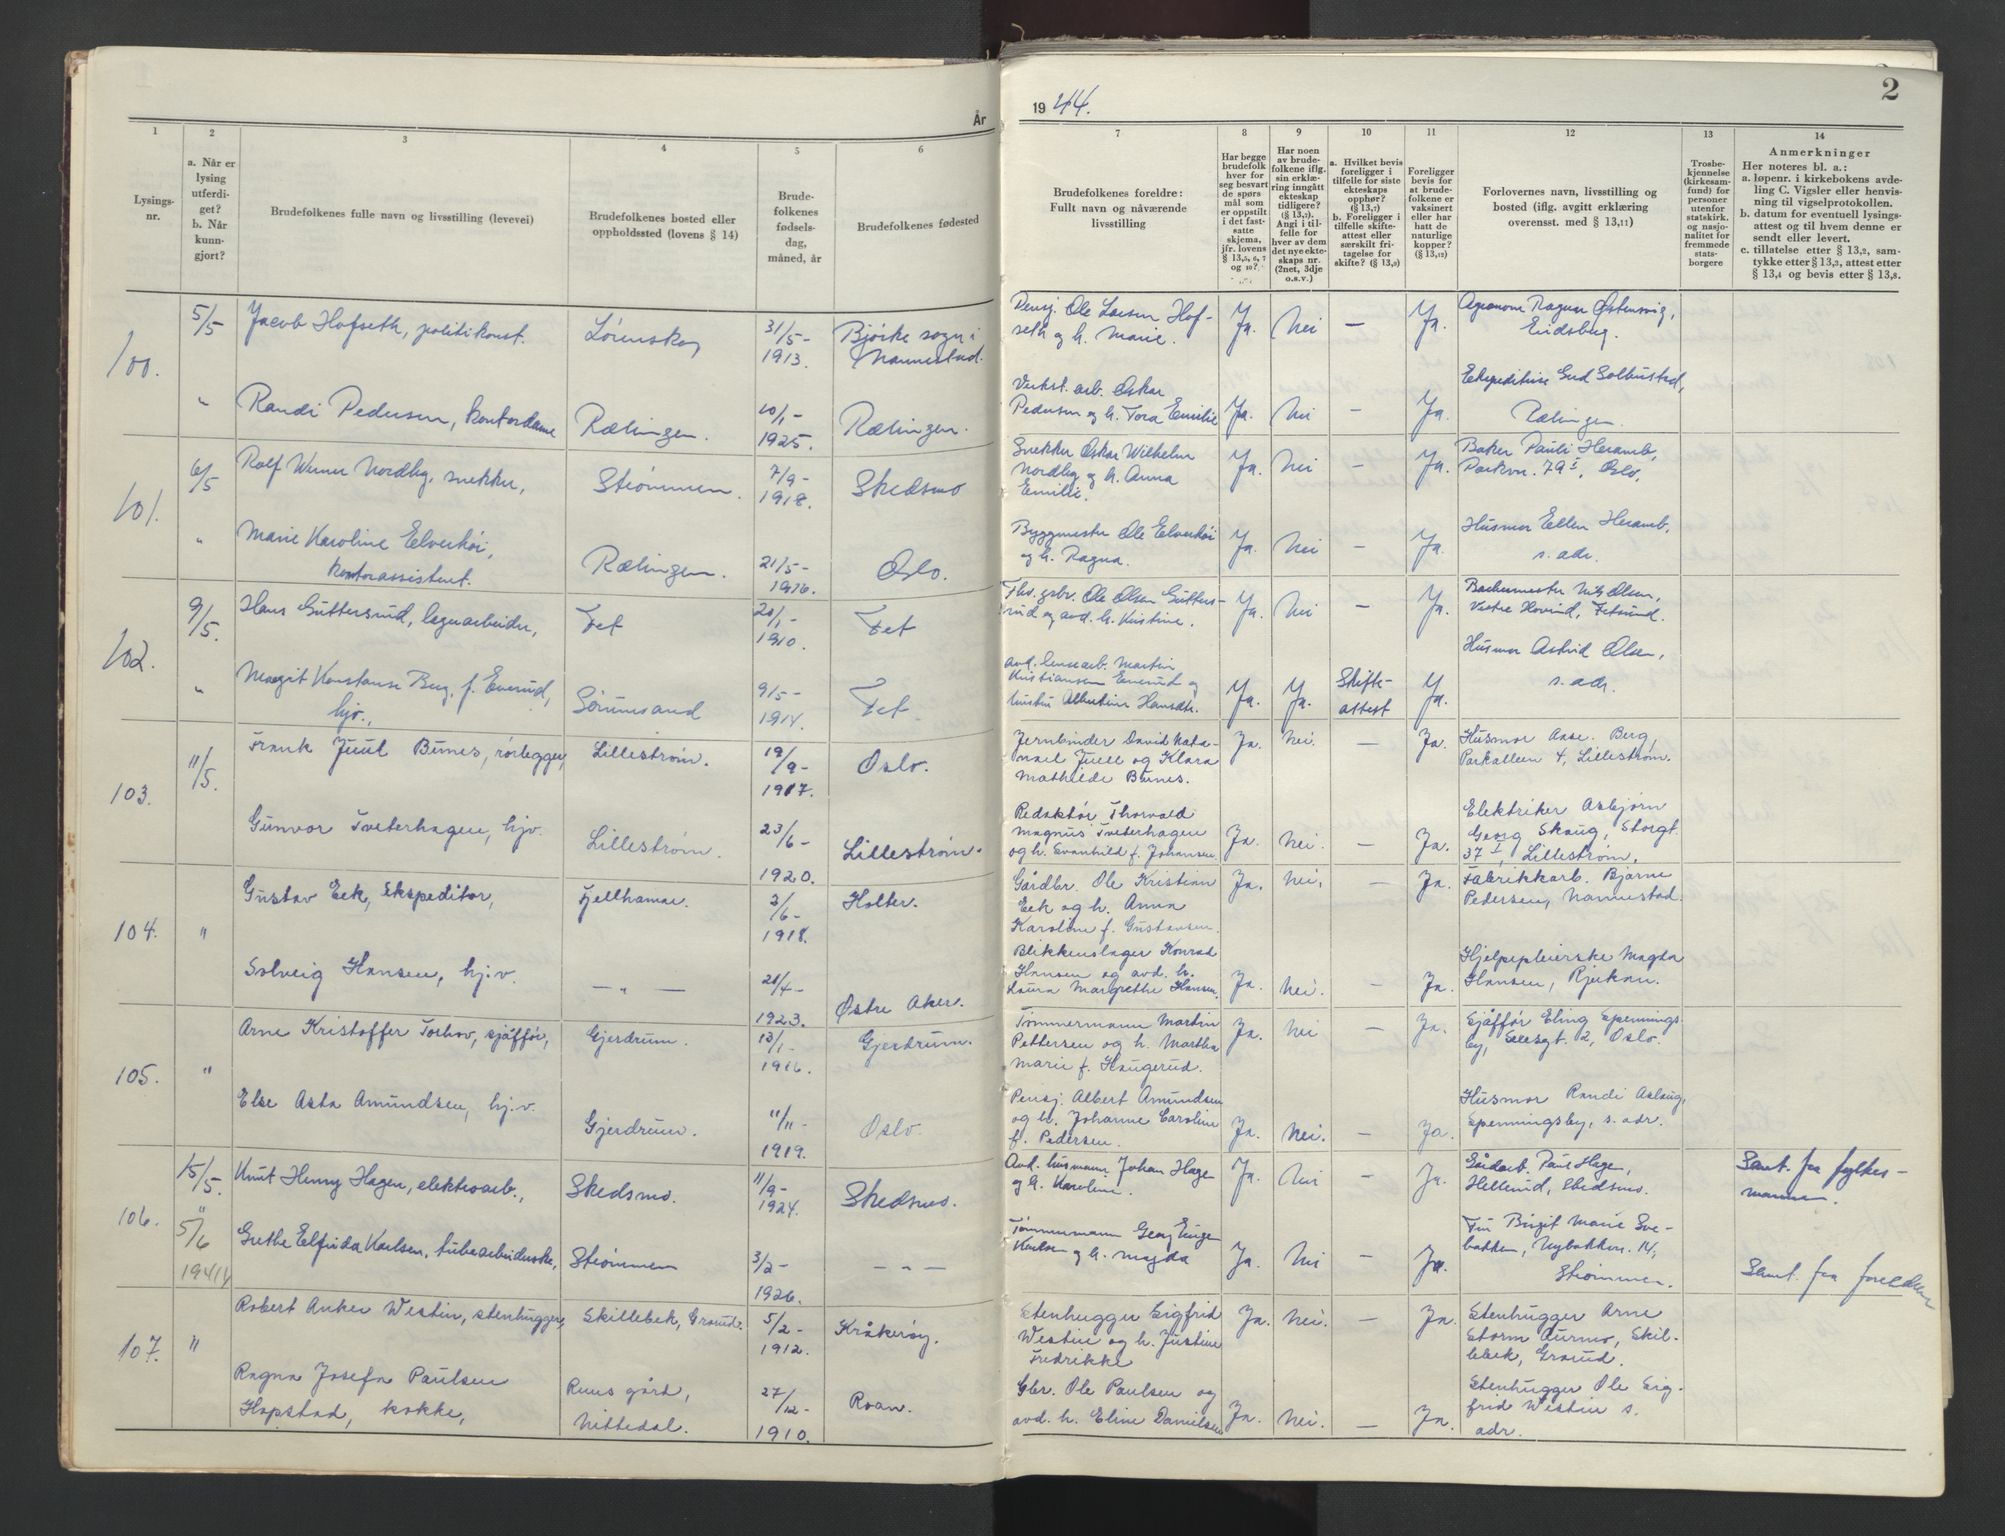 År
1944.
2
1
2
3
4
5
6
7
8
9
10
11
12
13
14
Lysings-
nr.
a. Når er
lysing
utferdi-
get?
b. Når
kunn-
gjort?
Brudefolkenes fulle navn og livsstilling (levevei)
Brudefolkenes bosted eller
oppholdssted (lovens § 14)
Brude-
folkenes
fødsels-
dag,
måned, år
Brudefolkenes fødested
Brudefolkenes foreldre:
Fullt navn og nåværende
livsstilling
Har begge
brudefolk
hver for
seg besvart
de spørs
mål som
er oppstilt
i det fast-
satte
skjema,
jfr. lovens
§ 13,5, 6, 7
og 10?
Har noen
av brude-
folkene iflg.
sin erklæ-
ring inngått
ekteskap
tidligere?
(§ 13,7).
Angi i til-
felle for
hver av dem
det nye ekte-
skaps nr.
(2net, 3dje
o.s.v.)
a. Hvilket bevis
foreligger i
tilfelle for siste
ekteskaps
opphør?
(§ 13,7)
b. Foreligger i
tilfelle skifte-
attest eller
særskilt fri-
tagelse for
skifte? (§ 13,9)
Foreligger
bevis for
at brude-
folkene er
vaksinert
eller har
hatt de
naturlige
kopper?
(§ 13,12)
Forlovernes navn, livsstilling og
bosted (iflg. avgitt erklæring
overensst. med § 13,11)
Trosbe-
kjennelse
(kirkesam-
fund) for
personer
utenfor
statskirk.
og nasjo-
nalitet for
fremmede
stats-
borgere
Anmerkninger
Her noteres bl. a.:
a. løpenr. i kirkebokens avde-
ling C. Vigsler eller henvis-
ning til vigselprotokollen.
b. datum for eventuell lysings-
attest og til hvem denne er
sendt eller levert.
c. tillatelse etter § 13,2, sam-
tykke etter § 13,3, attest etter
§ 13,4 og bevis etter § 13,8.
100.
5/5 Jacob Hofseth, politikonst. Lørenskog 31/5- Bjørke sogn i
1913. Nannestad.
Pensj. Ole Larsen Hof-
seth og h. Marie. Ja. Nei — Ja. Agronom Ragnar Østensvig,
Eidsberg.
" Randi Pedersen, kontordame Rælingen. 10/1- 1925. Rælingen.
Verkst. arb. Oskar
Pedersen og h. Tora Emilie Ja. Nei — Ja. Ekspeditrise Gud Solbustad,
Rælingen.
101.
6/5 Rolf Werner Nordby, snekker, Strømmen. 7/9- 1918. Skedsmo
Snekker Oskar Wilhelm
Nordby og h. Anna
Emilie. Ja. Nei — Ja. Baker Pauli Heramb,
Parkvn. 79 I, Oslo.
" Marie Karoline Elverhøi,
kontorassistent. Rælingen. 21/5- 1916. Oslo.
Byggmester Ole Elverhøi
og h. Ragna. Ja. Nei — Ja. Husmor Ellen Heramb,
s. adr.
102.
9/5. Hans Guttersrud, lagerarbeider, Fet 20/1- 1910. Fet
Fhv. grbr. Ole Olsen Gutters-
rud og avd. h. Kristine. Ja. Nei — Ja. Bademester Nils Olsen,
Vestre Hovind, Fetsund.
" Margit Konstanse Berg, f. Enerud,
hjv., Sørumsand 9/5- 1914. Fet.
avd. lensearb. Martin
Kristiansen Enerud og
hustru Albertine Hansdtr. Ja. Ja. Skifte-
attest Ja. Husmor Astrid Olsen,
s. adr.
103.
11/5. Frank Juul Bunes, rørlegger, Lillestrøm. 19/9- 1917. Oslo.
Jernbinder David Nata-
nael Juell og Klara
Mathilde Bunes. Ja. Nei. — Ja. Husmor Aase Berg,
Parkalleen 4, Lillestrøm.
Gunvor Tveterhagen, hjv. Lillestrøm. 23/6- 1920. Lillestrøm.
Redaktør Thorvald
Magnus Tveterhagen
og h. Svanhild f. Johansen. Ja. Nei. — Ja. Elektriker Asbjørn
Georg Skaug, Storgt.
37 I, Lillestrøm.
104.
" Gustav Eek, Ekspeditør, Fjellhamar. 3/6- 1918. Holter.
Gårdbr. Ole Kristian
Eek og h. Anna
Karoline f. Gustavsen. Ja. Nei. — Ja. Fabrikkarb. Bjarne
Pedersen, Nannestad.
Solveig Hansen, hj.v. — " — 21/4- 1923. Østre Aker.
Blikkenslager Konrad
Hansen og avd. h.
Laura Margrethe Hansen. Ja. Nei. — Ja. Hjelpepleierske Magda
Hansen, Rjukan.
105.
" Arne Kristoffer Torhov, sjåffør, Gjerdrum. 13/1- 1916. Gjerdrum.
Tømmermann Martin
Pettersen og h. Martha
Marie f. Haugerud. Ja. Nei — Ja. Sjåffør Eling Spennings-
by, Seilsgt. 2, Oslo.
Else Asta Amundsen, hj.v. Gjerdrum. 11/11- 1919. Oslo.
Pensj. Albert Amundsen
og h. Johanne Caroline
f. Pedersen. Ja. Nei. — Ja. Husmor Randi Aslaug,
Spenningsby, s. adr.
106.
15/5. Knut Henry Hagen, elektroarb., Skedsmo. 11/9- 1924. Skedsmo.
Avd. husmann Johan Hage
og h. Karoline. Ja. Nei — Ja. Gårdarb. Paul Hagen,
Hellerud, Skedsmo. Samt. fra fylkes-
mannen.
" 5/6 1944 Grethe Elfrida Karlsen, tubearbeiderske, Strømmen 3/2- 1926. — " —
Tømmermann Georg Einge
Karlsen og h. Magda Ja. Nei — Ja. Fru Birgit Marie Sve-
bakken, Nybakken. 14,
Strømmen. Samt. fra foreldrene
107.
" Robert Anker Westin, stenhugger, Skillebek, Grorud. 5/2- 1912. Kråkerøy.
Stenhugger Sigfrid
Westin og h. Justine
Fredrikke Ja. Nei. — Ja. Stenhugger Arne
Storm Aurmo, Skil-
lebek, Grorud.
Ragna Josefa Paulsen
Hopstad, kokke, Ruus gård,
Nittedal. 27/12- 1910. Roan.
Gbr. Ole Paulsen og
avd. h. Eline Danielsen Ja. Nei. — Ja. Stenhugger Ole Sig-
frid Westin s.
adr.